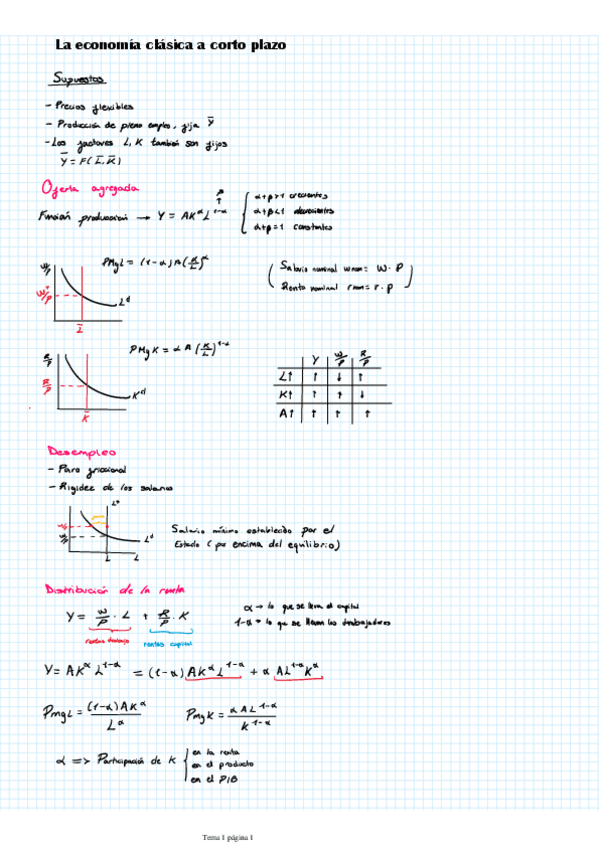 La economía clásica a corto plazo
Supuestos
- Precios flexibles
- Producción de pleno empleo, fija Ȳ
- Los factores L, K también son fijos
Ȳ = F(L̄, K̄)
Oferta agregada
β
↑
Función producción → Y = AK^α L^1-α
α+β>1 crecientes
α+β<1 decrecientes
α+β=1 constantes
PMgL = (1-α)A(K/L)^α
(Salario nominal wnom = W · P
Renta nominal rnom = r · P)
W/P
W/P
L^d
L̄
PMgK = α A (K/L)^1-α
R/P
R/P
K^d
K̄
Y W/P R/P
L↑ ↑ ↓ ↑
K↑ ↑ ↑ ↓
A↑ ↑ ↑ ↑
Desempleo
- Paro friccional
- Rigidez de los salarios
L^o
L^d
L L
Salario mínimo establecido por el
Estado (por encima del equilibrio)
Distribución de la renta
Y = W/P · L + R/P · K
rentas trabajo rentas capital
α → lo que se lleva el capital
1-α → lo que se llevan los trabajadores
Y = AK^α L^1-α = (1-α) AK^α L^1-α + α AL^1-α K^α
PmgL = (1-α)AK^α / L^α
PmgK = αAL^1-α / K^1-α
α => Participación de K
en la renta
en el producto
en el PIB
Tema 1 página 1